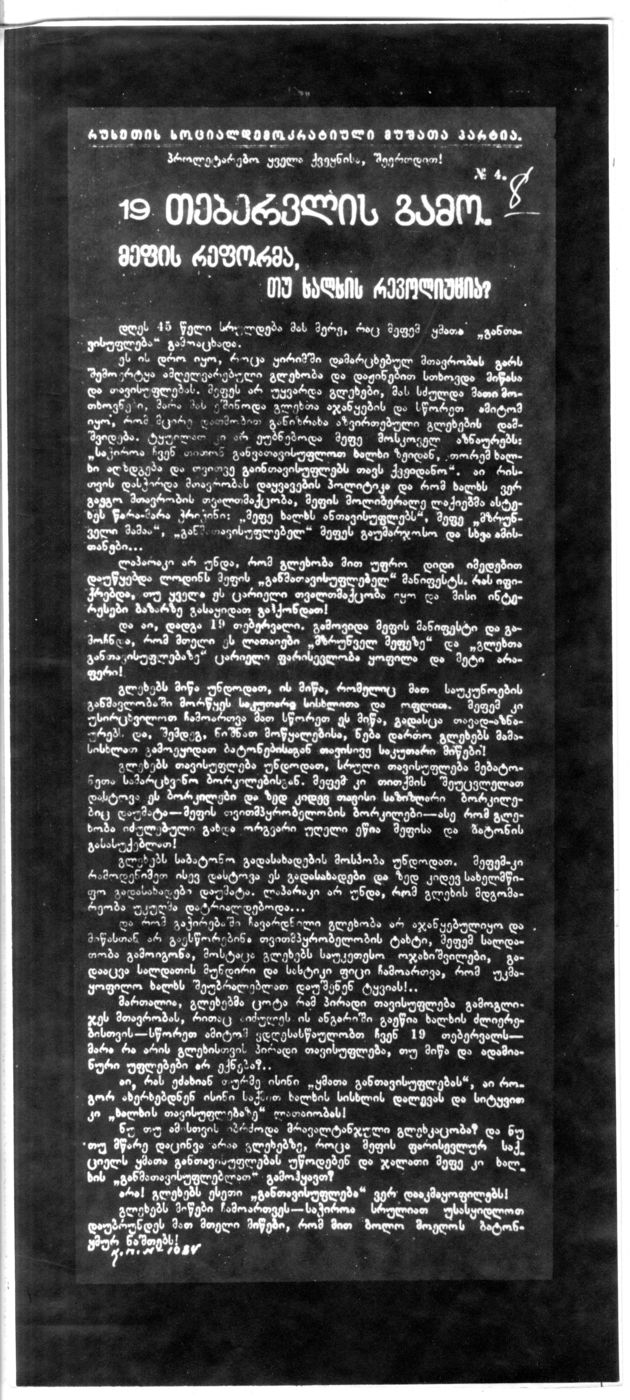 რუსეთის სოციალდემოკრატიული მუშათა პარტია.
პროლეტარებო ყველა ქვეყნისა, შეერთდით!
№ 4.
8
19 თებერვლის გამო.
მეფის რეფორმა,
თუ ხალხის რევოლიუცია?
დღეს 45 წელი სრულდება მას მერე, რაც მეფემ ყმათა „განთა-
ვისუფლება“ გამოაცხადა.
ეს ის დრო იყო, როცა ყირიმში დამარცხებულ მთავრობას გარს
შემოერტყა ამღელვარებული გლეხობა და დაჟინებით სთხოვდა მიწასა
და თავისუფლებას. მეფეს არ უყვარდა გლეხები, მას სძულდა მათი მო-
თხოვნები, მარა მას ეშინოდა გლეხთა აჯანყების და სწორეთ ამიტომ
იყო, რომ მცირე დათმობით განიზრახა აზვირთებული გლეხების დამ-
შვიდება. ტყუილათ კი არ ეუბნებოდა მეფე მოსკოველ აზნაურებს:
„საჭიროა ჩვენ თითონ განვათავისუფლოთ ხალხი ზეიდან, თორემ ხალ-
ხი აღსდგება და თვითვე გაინთავისუფლებს თავს ქვეიდანო“. აი რის-
თვის დასჭირდა მთავრობას დაყვავების პოლიტიკა და რომ ხალხს ვერ
გაეგო მთავრობის თვალთმაქცობა, მეფის მოლიბერალე ლაქიებმა ასტე-
ხეს წარა-მარა კრიჟინი: „მეფე ხალხს ანთავისუფლებს“, მეფე „მზრუნ-
ველი მამაა“, „განმათავისუფლებელ“ მეფეს გაუმარჯოსო და სხვა ამის-
თანები...
ლაპარაკი არ უნდა, რომ გლეხობა მით უფრო დიდი იმედებით
დაუწყებდა ლოდინს მეფის „განმათავისუფლებელ“ მანიფესტს. რას იფი-
ქრებდა, თუ ყველა ეს ცარიელი თვალთმაქცობა იყო და მისი ინტე-
რესები ბაზარზე გასაყიდათ გაჰქონდათ!
და აი, დადგა 19 თებერვალი. გამოვიდა მეფის მანიფესტი და გა-
მოჩნდა, რომ მთელი ეს ლათაიები „მზრუნველ მეფეზე“ და „გლეხთა
განთავისუფლებაზე“ ცარიელი ფარისევლობა ყოფილა და მეტი არა-
ფერი!
გლეხებს მიწა უნდოდათ, ის მიწა, რომელიც მათ საუკუნოების
განმავლობაში მორწყეს საკუთარი სისხლითა და ოფლით. მეფემ კი
უსირცხვილოთ ჩამოართვა მათ სწორეთ ეს მიწა, გადასცა თავად-აზნა-
ურებს და, შემდეგ, ნიშნათ მოწყალებისა, ნება დართო გლეხებს მამა-
სისხლათ გამოეყიდათ ბატონებისაგან თავისივე საკუთარი მიწები!
გლეხებს თავისუფლება უნდოდათ, სრული თავისუფლება მებატო-
ნეთა სამარცხვინო ბორკილებისგან. მეფემ კი თითქმის შეუცვლელათ
დასტოვა ეს ბორკილები და ზედ კიდევ თავისი საზიზღარი ბორკილე-
ბიც დაუმატა—მეფის თვითმპყრობელობის ბორკილები—ასე რომ გლე-
ხობა იძულებული გახდა ორგვარი უღელი ეწია მეფისა და ბატონის
გასასუქებლათ!
გლეხებს საბატონო გადასახადების მოსპობა უნდოდათ. მეფემ-კი
რამოდენიმეთ ისევ დასტოვა ეს გადასახადები და ზედ კიდევ სახელმწი-
ფო გადასახადები დაუმატა. ლაპარაკი არ უნდა, რომ გლეხის მდგომა-
რეობა უკუღმა დატრიალდებოდა...
და რომ გაჭირებაში ჩავარდნილი გლეხობა არ აჯანყებულიყო და
მიწასთან არ გაესწორებინა თვითმპყრობელობის ტახტი, მეფემ სალდა-
თობა გამოიგონა, მოსტაცა გლეხებს საუკეთესო ოჯახიშვილები, გა-
დააცვა სალდათის მუნდირი და სასტიკი ფიცი ჩამოართვა, რომ უკმა-
ყოფილო ხალხს შეუბრალებლათ დაუშენენ ტყვიას!..
მართალია, გლეხებმა ცოტა რამ პირადი თავისუფლება გამოგლი-
ჯეს მთავრობას, რითაც აიძულეს ის ანგარიში გაეწია ხალხის ძლიერე-
ბისთვის—სწორეთ ამიტომ ვდღესასწაულობთ ჩვენ 19 თებერვალს—
მარა რა არის გლეხისთვის პირადი თავისუფლება, თუ მიწა და ადამია-
ნური უფლებები არ ექნება?..
აი, რას ეძახიან თურმე ისინი „ყმათა განთავისუფლებას“, აი რო-
გორ ახერხებდნენ ისინი საქმით ხალხის სისხლის დალევას და სიტყვით
კი „ხალხის თავისუფლებაზე“ ლათაიობას!
ნუ თუ ამისთვის იბრძოდა მრავალტანჯული გლეხკაცობა? და ნუ
თუ მწარე დაცინვა არაა გლეხებზე, როცა მეფის ფარისევლურ საქ-
ციელს ყმათა განთავისუფლებას უწოდებენ და ჯალათი მეფე კი ხალ-
ხის „განმათავისუფლებლათ“ გამოჰყავთ?
არა! გლეხებს ესეთი „განთავისუფლება“ ვერ დააკმაყოფილებს!
გლეხებს მიწები ჩამოართვეს—საჭიროა სრულიათ უსასყიდლოთ
დაუბრუნდეს მათ მთელი მიწები, რომ მით ბოლო მოეღოს ბატონ-
ყმურ ნაშთებს!